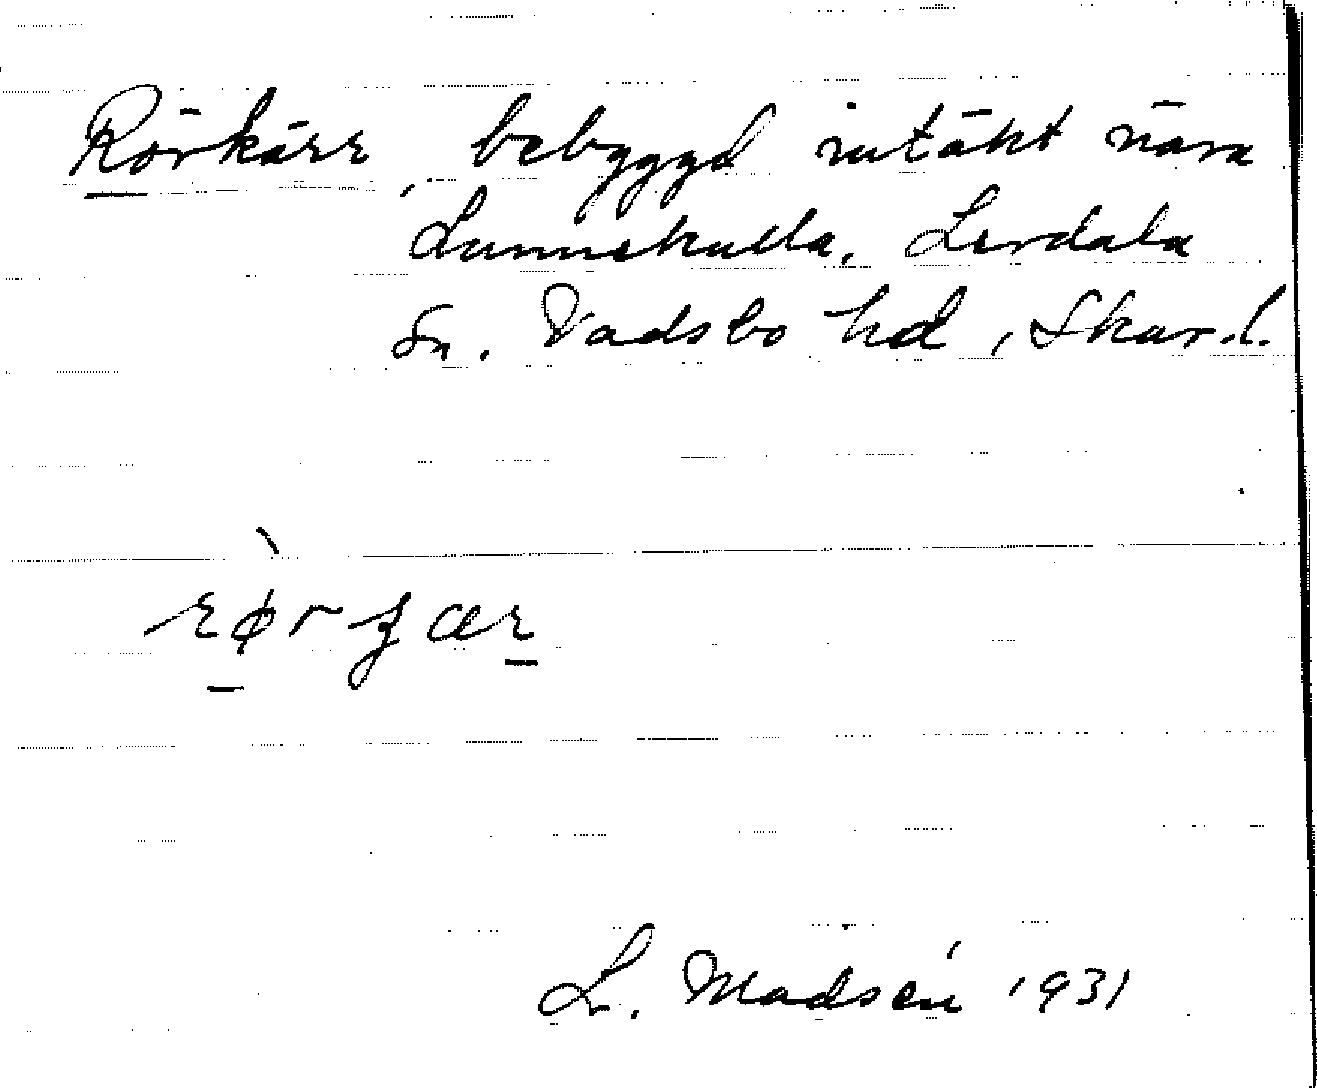 Rörkärr, bebyggd intäkt nära
Lunnekulla, Lerdala
sn. Vadsbo hd, Skar. l.
L. Madsén 1931